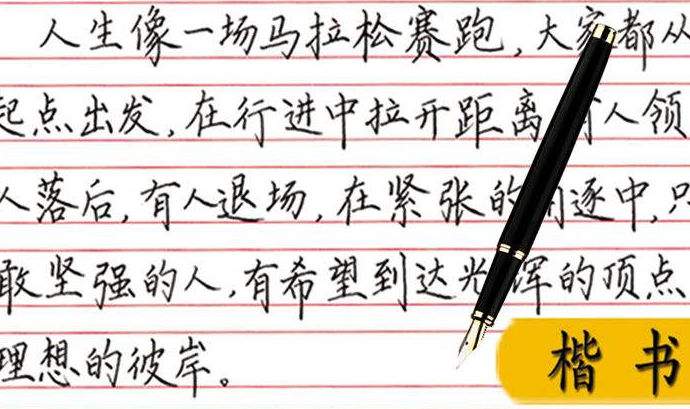 人生像一场马拉松赛跑,大家都从
起点出发,在行进中拉开距离 人领
人落后,有人退场,在紧张的 逐中,只
敢坚强的人,有希望到达光辉的顶点
理想的彼岸。
楷书